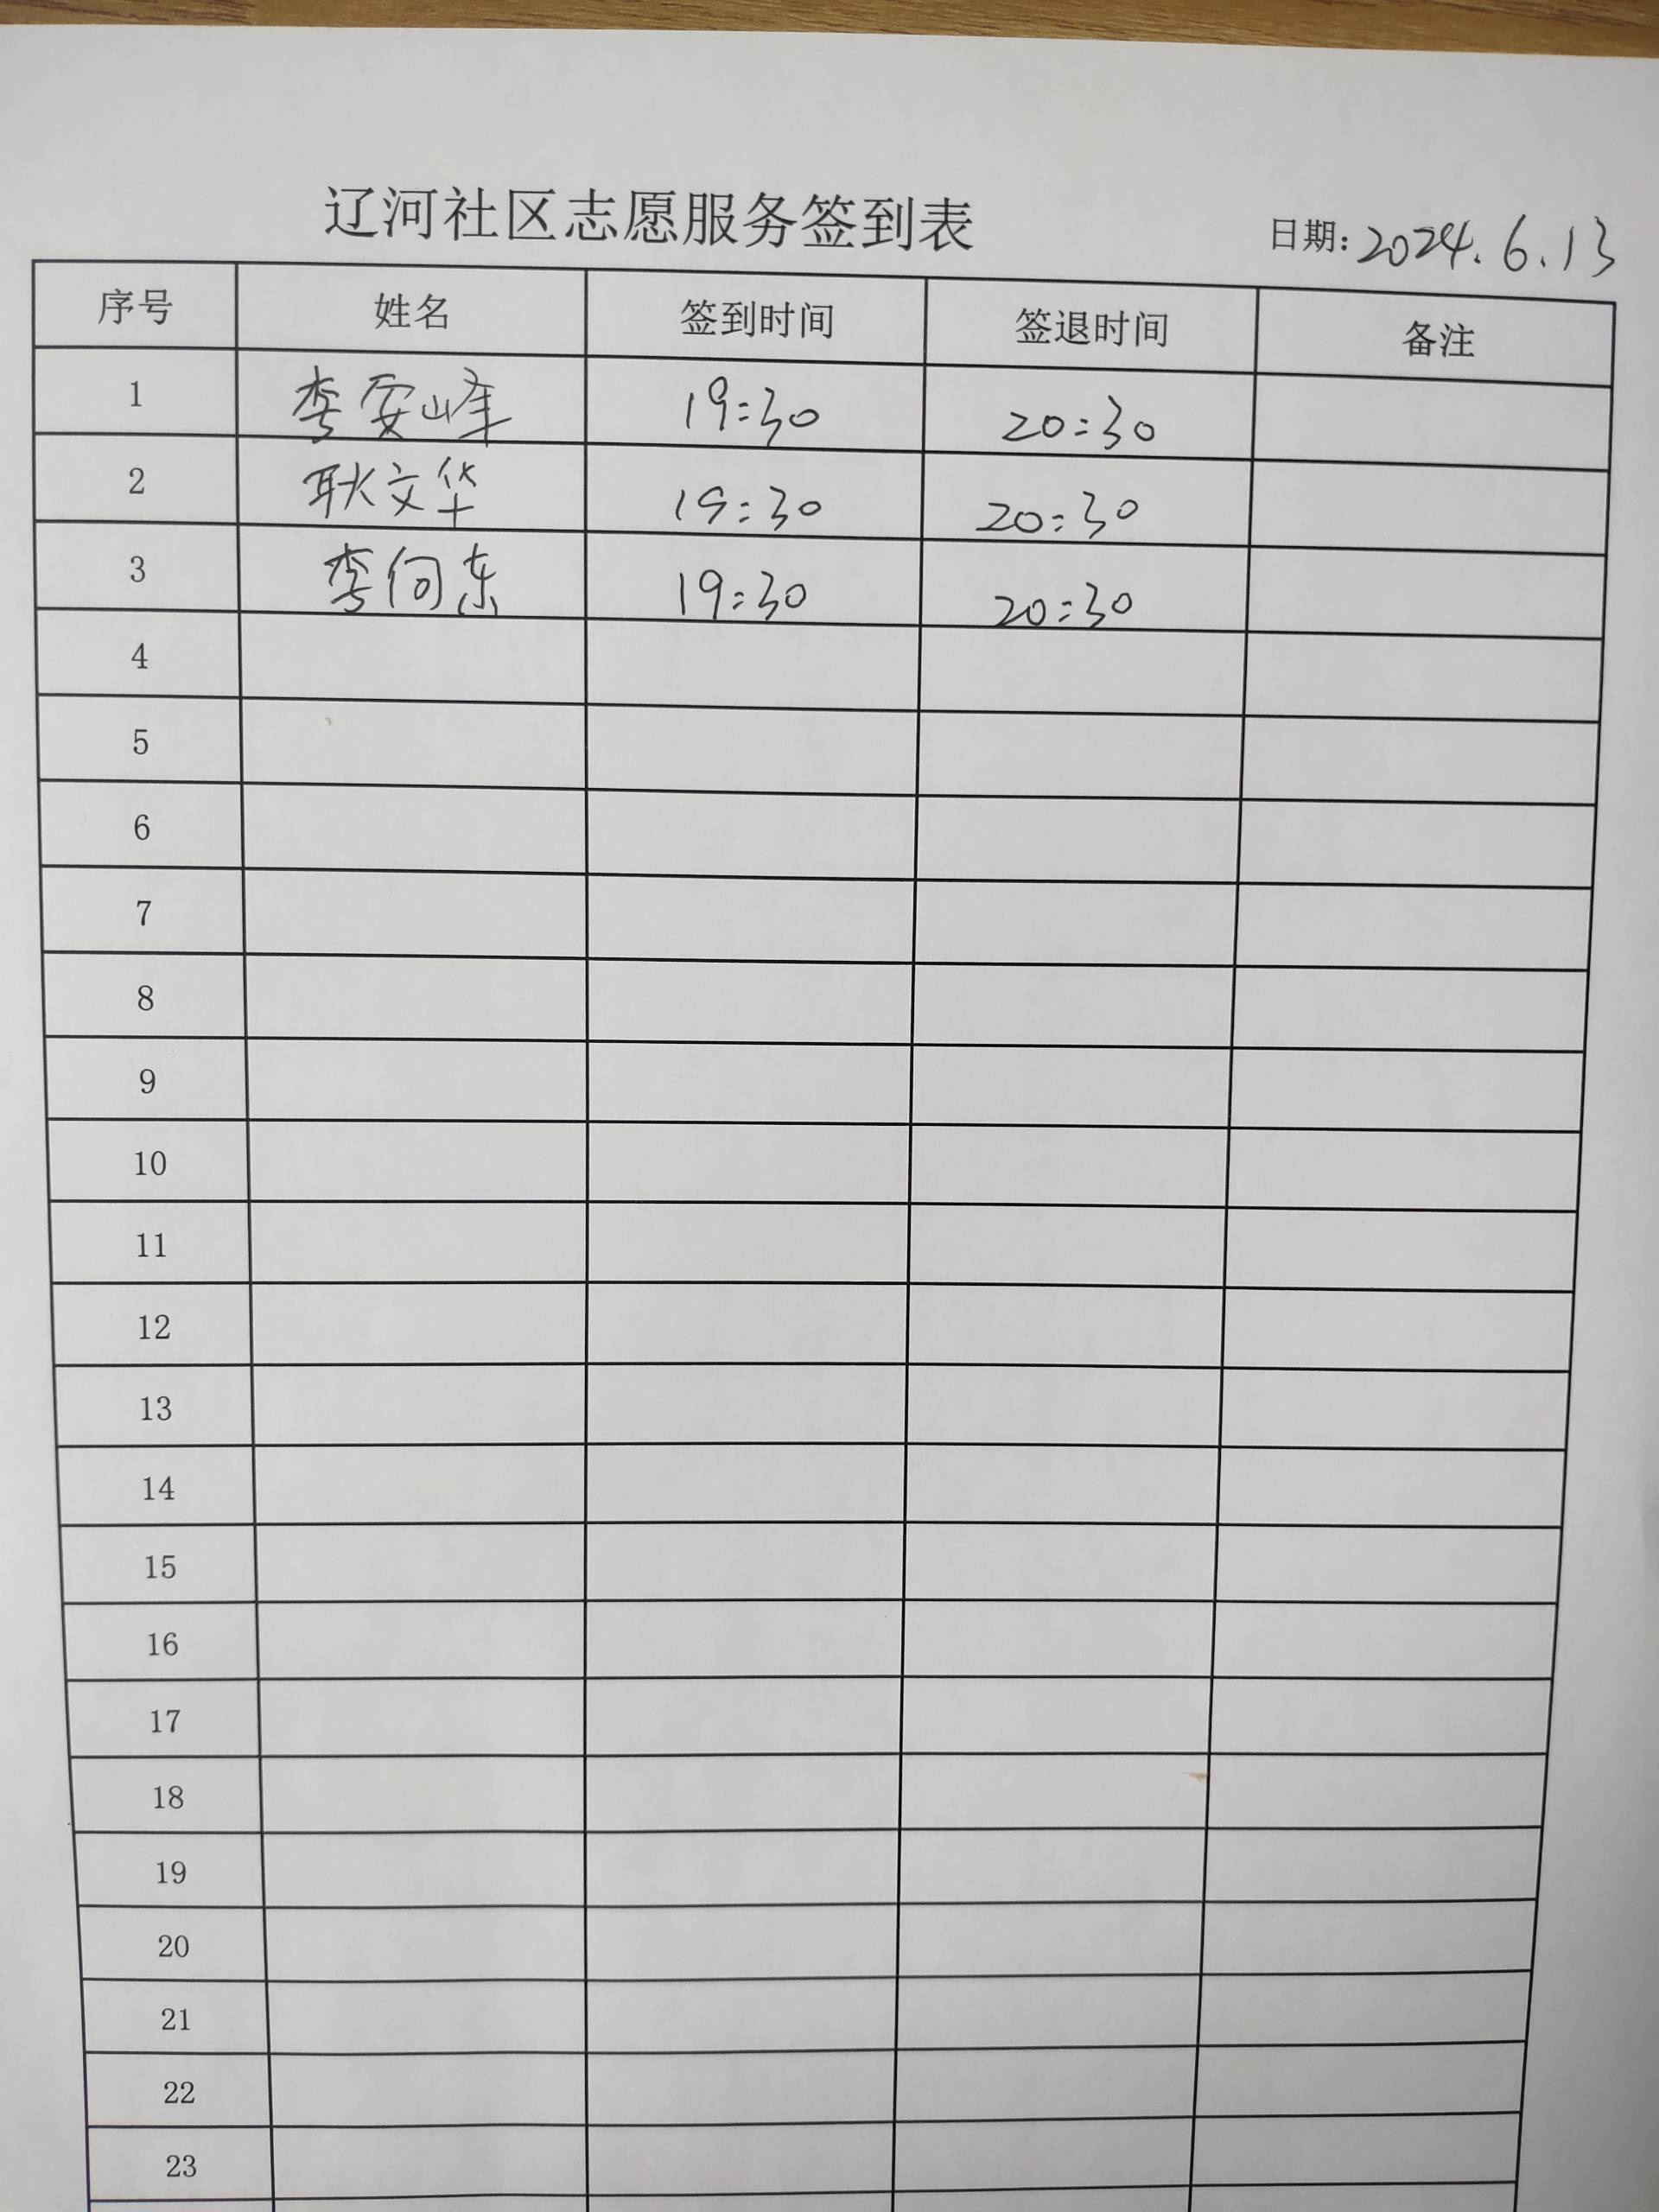 辽河社区志愿服务签到表 日期：2024.6.13
序号 姓名 签到时间 签退时间 备注
1 李安峰 19:30 20:30
2 耿文华 19:30 20:30
3 李向东 19:30 20:30
4
5
6
7
8
9
10
11
12
13
14
15
16
17
18
19
20
21
22
23